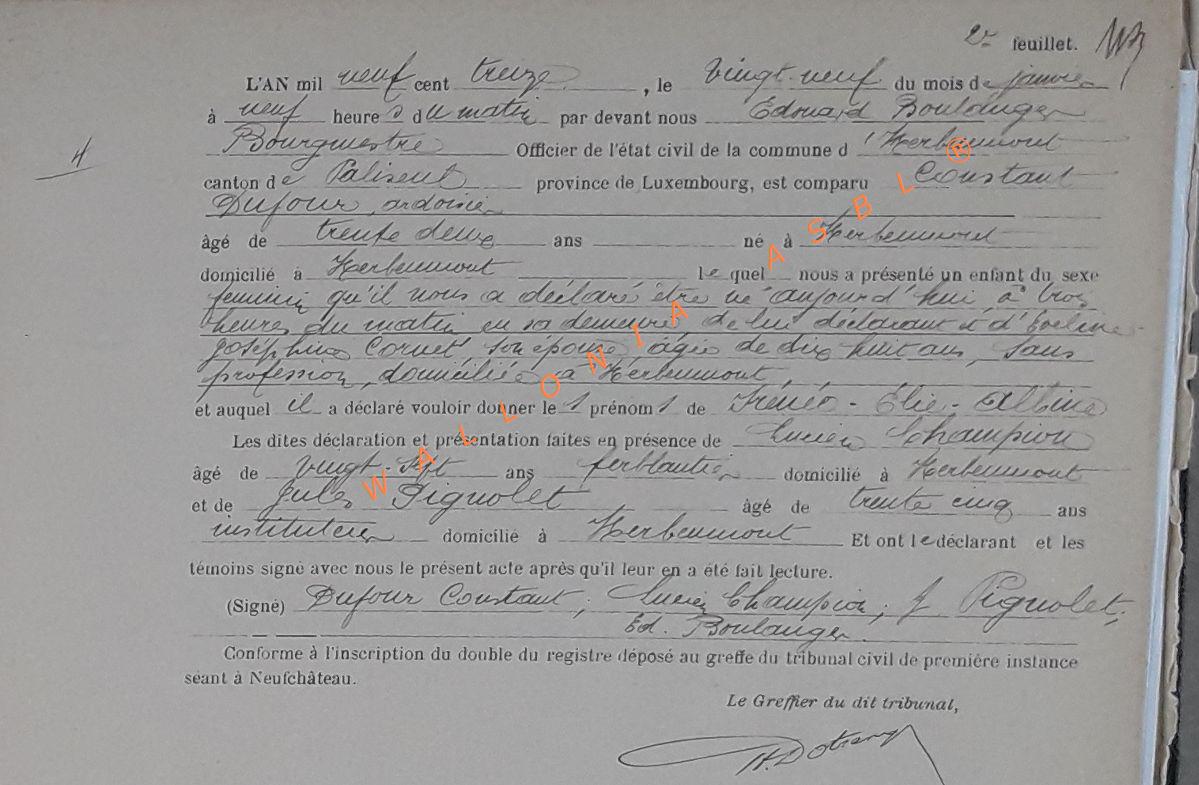 2e feuillet.
L'AN mil neuf cent treize, le vingt-neuf du mois de janvier
à neuf heures du matin par devant nous Edouard Boulanger
Bourgmestre Officier de l'état civil de la commune d'Herbeumont
4
canton de Paliseul province de Luxembourg, est comparu Constant
Dufour, ardoisier
âgé de trente deux ans né à Herbeumont
domicilié à Herbeumont lequel nous a présenté un enfant du sexe
féminin qu'il nous a déclaré être né aujourd'hui à trois
heures du matin en sa demeure, de lui déclarant et d'Eveline
Joséphine Cornet, son épouse, âgée de dix huit ans, sans
profession, domiciliée à Herbeumont,
et auquel il a déclaré vouloir donner les prénoms de Irénée-Élie-Albine
Les dites déclaration et présentation faites en présence de Lucien Champion
âgé de vingt-sept ans ferblantier domicilié à Herbeumont
et de Jules Pignolet âgé de trente cinq ans
instituteur domicilié à Herbeumont Et ont le déclarant et les
témoins signé avec nous le présent acte après qu'il leur en a été fait lecture.
(Signé) Dufour Constant; Lucien Champion; J Pignolet;
Ed. Boulanger.
Conforme à l'inscription du double du registre déposé au greffe du tribunal civil de première instance
séant à Neufchâteau.
Le Greffier du dit tribunal,
WALLONIA ASBL ®